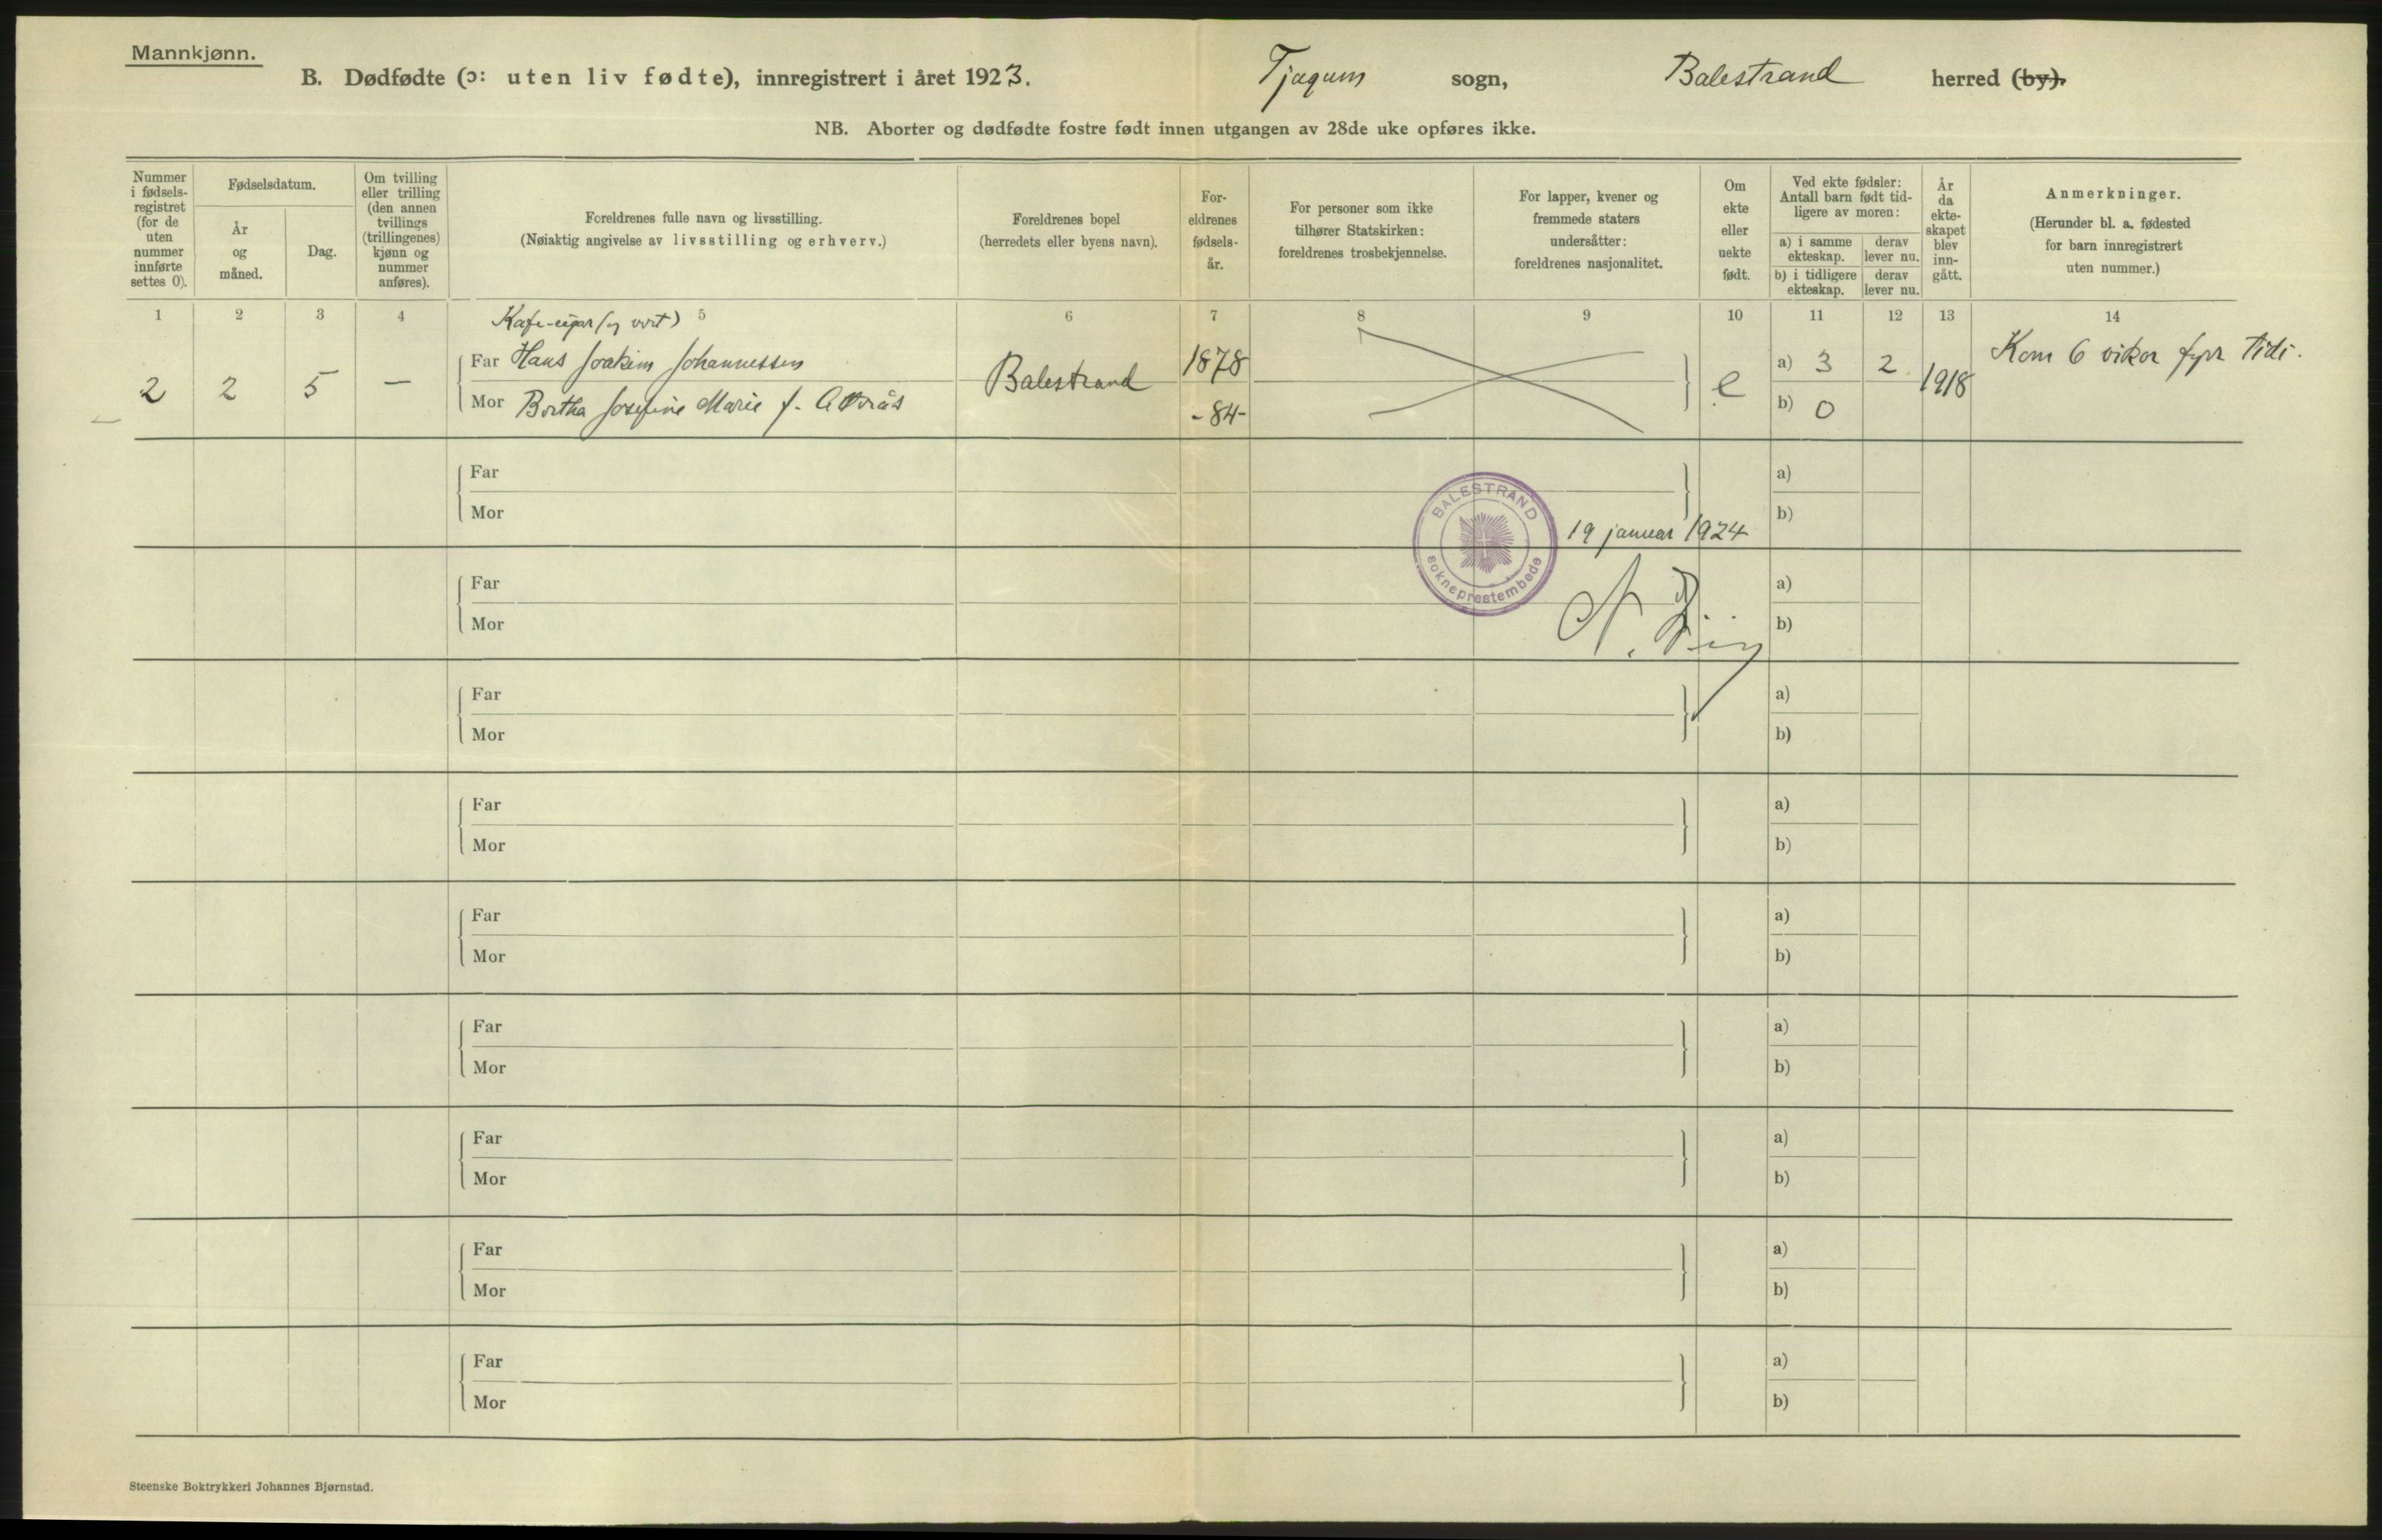 Mannkjønn.
B. Dødfødte (ɔ: uten liv fødte), innregistrert i året 1923. Tjugum sogn, Balestrand herred (by).
NB. Aborter og dødfødte fostre født innen utgangen av 28de uke opføres ikke.
Nummer i fødsels-registret (for de uten nummer innførte settes 0).
Fødselsdatum.
År og måned.
Dag.
Om tvilling eller trilling (den annen tvillings (trillingenes) kjønn og nummer anføres).
Foreldrenes fulle navn og livsstilling.
(Nøiaktig angivelse av livsstilling og erhverv.)
Foreldrenes bopel
(herredets eller byens navn).
For-eldrenes fødsels-år.
For personer som ikke tilhører Statskirken: foreldrenes trosbekjennelse.
For lapper, kvener og fremmede staters undersåtter: foreldrenes nasjonalitet.
Om ekte eller uekte født.
Ved ekte fødsler: Antall barn født tid-ligere av moren:
a) i samme ekteskap. derav lever nu.
b) i tidligere ekteskap. derav lever nu.
År da ekte-skapet blev inn-gått.
Anmerkninger.
(Herunder bl. a. fødested for barn innregistrert uten nummer.)
1 2 3 4 5 6 7 8 9 10 11 12 13 14
Kafe-eigar (og vert)
Far Hans Joakim Johannessen 1878 a) 3 2 Kom 6 vikor fyrr tidi.
2 2 5 — Balestrand e 1918
Mor Bertha Josefine Marie f. -84- b) 0
Far a)
Mor b)
BALESTRAND
sokneprestembede
19 januar 1924
Far a)
Mor b)
N.
Far a)
Mor b)
Far a)
Mor b)
Far a)
Mor b)
Far a)
Mor b)
Far a)
Mor b)
Far a)
Mor b)
Far a)
Mor b)
Steenske Boktrykkeri Johannes Bjørnstad.